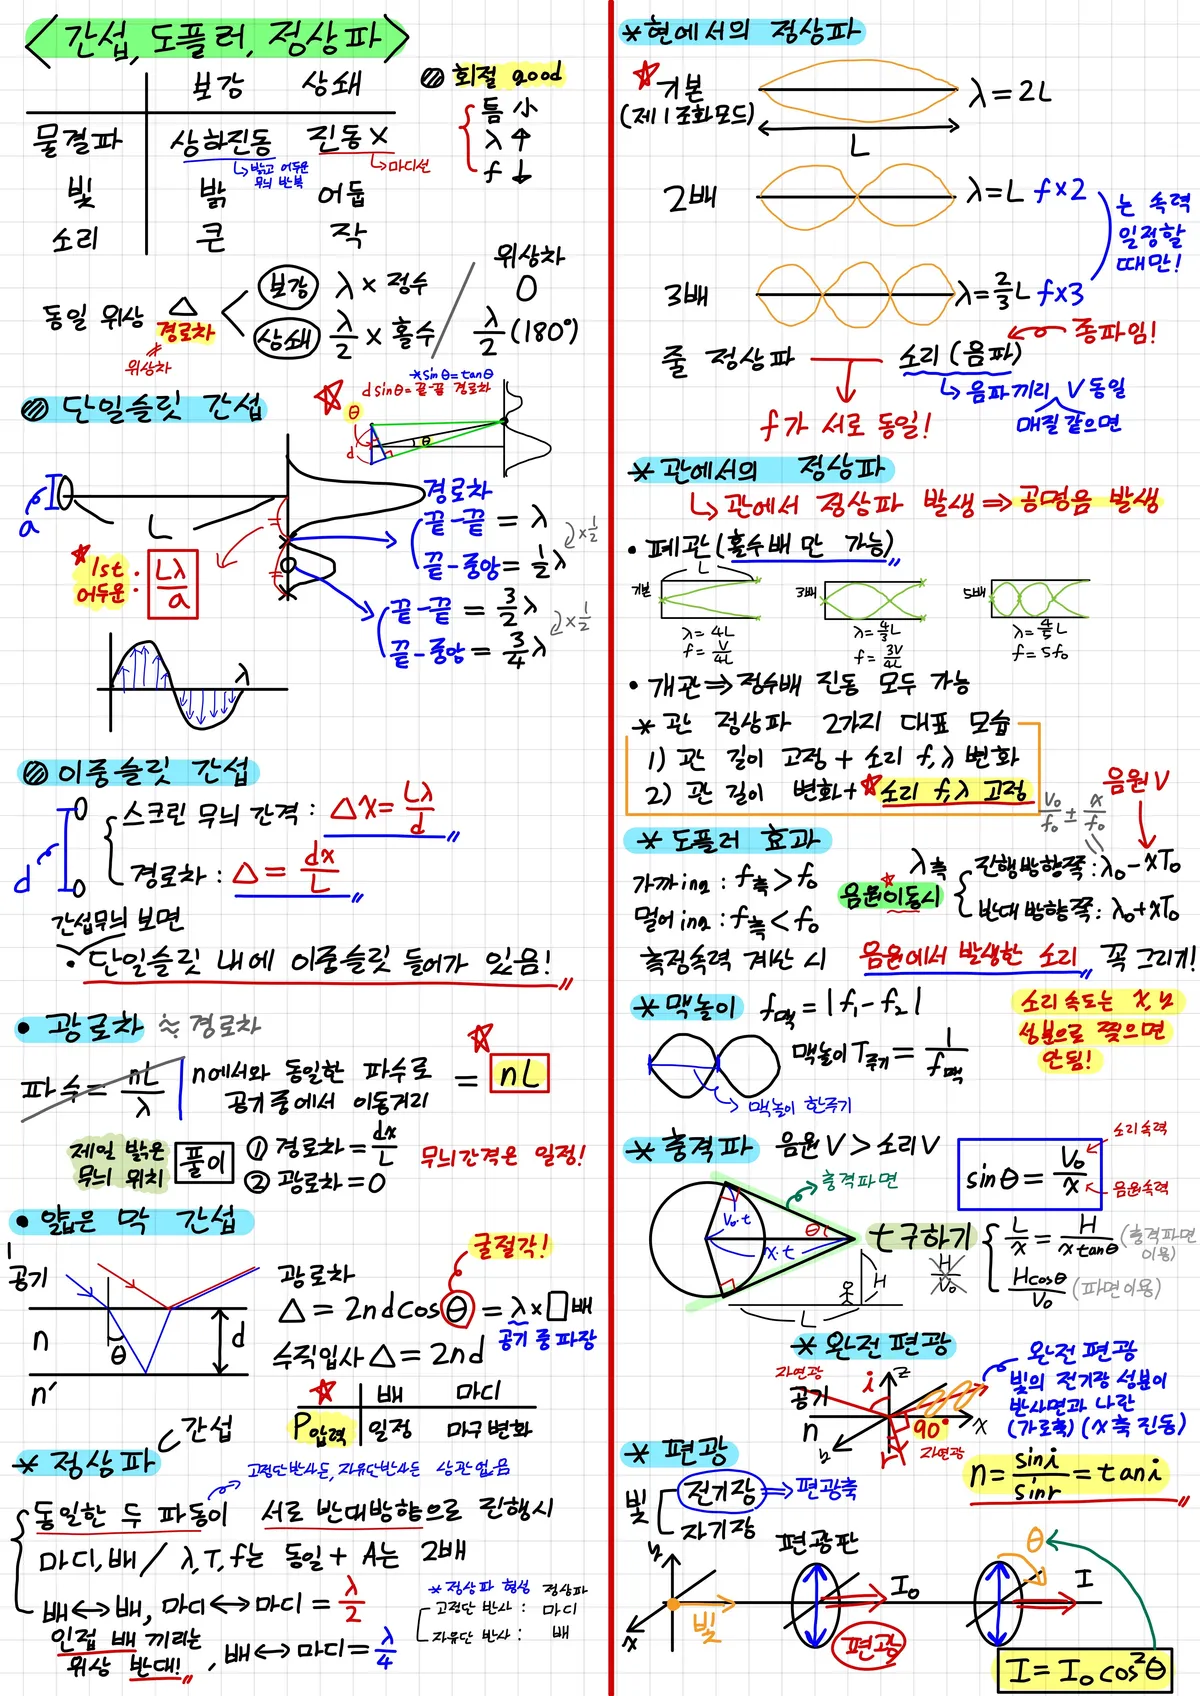 <간섭, 도플러, 정상파>
보강 상쇄
물결파 상하진동 진동 X
↳밝고 어두운 무늬 반복
↳마디선
빛 밝 어둡
소리 큰 작
회절 good
틈 小
λ ↑
f ↓
동일 위상 △ 경로차
≠
위상차
보강 λ × 정수
상쇄 λ/2 × 홀수
위상차
0
λ/2 (180°)
단일슬릿 간섭
*sinθ=tanθ
dsinθ=끝-끝 경로차
θ
d
θ
a
L
1st 어두운 : Lλ/a
경로차
끝-끝 = λ
끝-중앙 = 1/2 λ
×1/2
끝-끝 = 3/2 λ
끝-중앙 = 3/4 λ
×1/2
λ
이중슬릿 간섭
d
스크린 무늬 간격 : △x = Lλ/d
경로차 : △ = dx/L
간섭무늬 보면
• 단일슬릿 내에 이중슬릿 들어가 있음!
• 광로차 ≈ 경로차
파수 = nL/λ
n에서와 동일한 파수로
공기 중에서 이동거리
= nL
제일 밝은 무늬 위치
풀이
① 경로차 = dx/L
② 광로차 = 0
무늬간격은 일정!
• 얇은 막 간섭
1
공기
n
n′
θ
d
굴절각!
광로차
△ = 2ndcosθ = λ × □배
공기 중 파장
수직입사 △ = 2nd
배 마디
P압력 일정 마구 변화
간섭
* 정상파
고정단반사든, 자유단반사든 상관없음
동일한 두 파동이 서로 반대방향으로 진행시
마디, 배 / λ, T, f는 동일 + A는 2배
배↔배, 마디↔마디 = λ/2
인접 배 끼리는
위상 반대!
, 배↔마디 = λ/4
* 정상파 형성 정상파
고정단 반사 : 마디
자유단 반사 : 배
*현에서의 정상파
기본
(제1조화모드)
λ = 2L
L
2배 λ=L f×2
3배 λ=2/3 L f×3
는 속력
일정할
때만!
줄 정상파 — 소리(음파) ← 종파임!
f가 서로 동일!
↳ 음파끼리 V 동일
매질 같으면
* 관에서의 정상파
↳관에서 정상파 발생 ⇒ 공명음 발생
• 폐관 (홀수배 만 가능)
L
기본 3배 5배
λ = 4L λ = 4/3 L λ = 4/5 L
f = V/4L f = 3V/4L f = 5f₀
• 개관 ⇒ 정수배 진동 모두 가능
* 관 정상파 2가지 대표 모습
1) 관 길이 고정 + 소리 f,λ 변화
2) 관 길이 변화 + 소리 f,λ 고정
음원 V
V₀/f₀ ± x/f₀
* 도플러 효과
가까ing : f측 > f₀
멀어ing : f측 < f₀
음원이동시
λ측
진행방향쪽 : λ₀ - xT₀
반대방향쪽 : λ₀ + xT₀
측정속력 계산 시 음원에서 발생한 소리 꼭 그리기!
* 맥놀이 f맥 = |f₁ - f₂|
맥놀이 T주기 = 1/f맥
→ 맥놀이 한주기
소리 속도는 x, y
성분으로 찢으면
안됨!
* 충격파 음원 V > 소리 V
충격파면
V₀·t
x·t
θ
sinθ = V₀/x
소리속력
음원속력
t 구하기
H/V₀
L/x = H/xtanθ (충격파면 이용)
Hcosθ/V₀ (파면이용)
H
L
* 완전 편광
자연광
공기
n
i
z
x
y
r
90°
자연광
완전 편광
빛의 전기장 성분이
반사면과 나란
(가로축) (x축 진동)
n = sini/sinr = tan i
* 편광
빛
전기장 ⇒ 편광축
자기장
y
x
빛
편광판
I₀
편광
θ
I
I = I₀cos²θ